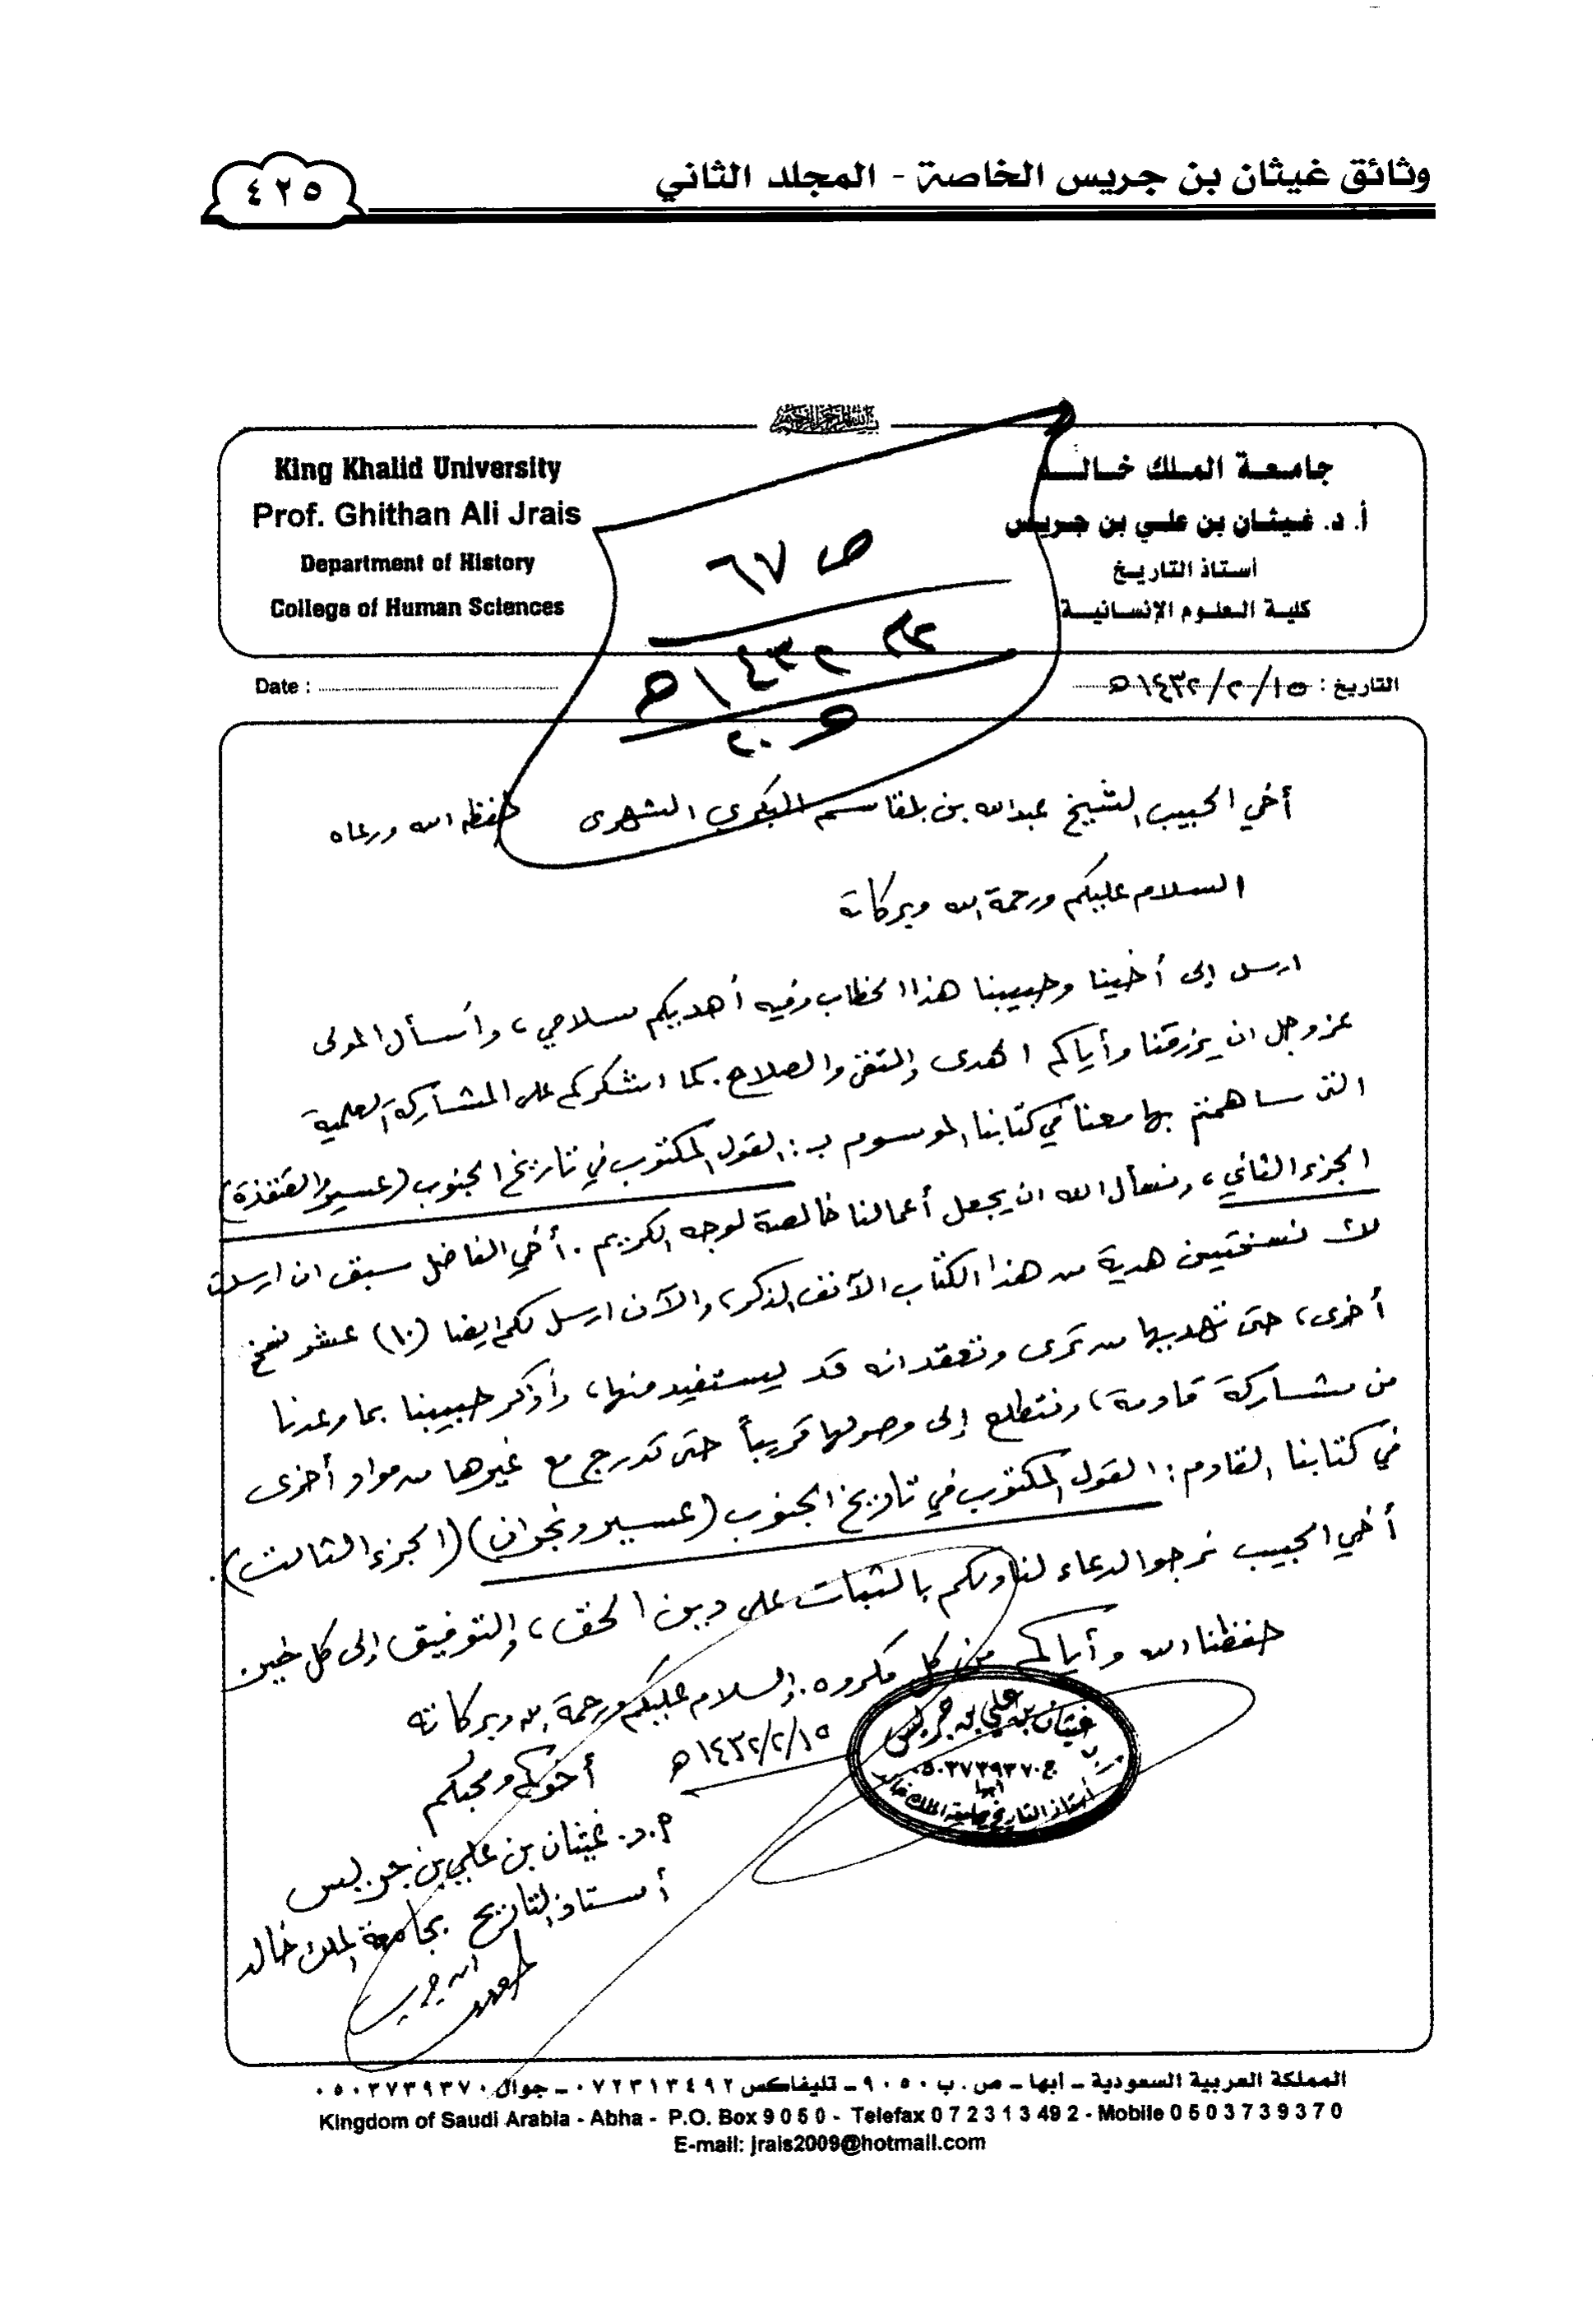 وثائق غيثان بن جريس الخاصة - المجلد الثاني
٤٢٥
King Khalid University
Prof. Ghithan Ali Jrais
Department of History
College of Human Sciences
جامعة الملك خالد
أ. د. غيثان بن علي بن جريس
أستاذ التاريخ
كلية العلوم الإنسانية
ص ٦٧
١٤٣٢هـ
Date :
التاريخ : ١٥/٢/١٤٣٢هـ
أخي الحبيب الشيخ عبدالله بن بلقاسم البكري الشهري حفظه الله ورعاه
السلام عليكم ورحمة الله وبركاته
ارسل إلى أخينا وحبيبنا هذا الخطاب وفيه أهديكم سلامي، وأسأل المولى
عز وجل ان يرزقنا وأياكم الهدى والتقى والصلاح. كما اشكركم على المشاركة العلمية
التي ساهمتم بها معنا في كتابنا الموسوم بـ: القول المكتوب في تاريخ الجنوب (عسير والقنفذة)
الجزء الثاني، ونسأل الله ان يجعل أعمالنا خالصة لوجه الكريم. أخي الفاضل سبق ان ارسلت
لك نسختين هدية من هذا الكتاب الآنف الذكر، والآن ارسل لكم ايضا (١٠) عشر نسخ
أخرى، حتى تهديها من ترى وتعتقد انه قد يستفيد منها، وأذكر حبيبنا بما وعدنا
من مشاركة قادمة، ونتطلع إلى وصولها قريباً حتى تدرج مع غيرها من مواد أخرى
في كتابنا القادم: القول المكتوب في تاريخ الجنوب (عسير ونجران) (الجزء الثالث).
أخي الحبيب نرجو الدعاء لنا ولكم بالثبات على دين الحق، والتوفيق إلى كل خير.
حفظنا الله وأياكم من كل مكروه. والسلام عليكم ورحمة الله وبركاته
١٥/٢/١٤٣٢هـ
أخوكم ومحبكم
أ.د. غيثان بن علي بن جريس
أستاذ التاريخ بجامعة الملك خالد
غيثان بن علي بن جريس
ج ٠٥٠٣٧٣٩٣٧٠
أبها
أستاذ التاريخ بجامعة الملك خالد
المملكة العربية السعودية - أبها - ص . ب ٩٠٥٠ - تليفاكس ٠٧٢٣١٣٤٩٢ - جوال ٠٥٠٣٧٣٩٣٧٠
Kingdom of Saudi Arabia - Abha - P.O. Box 9 0 5 0 - Telefax 0 7 2 3 1 3 49 2 - Mobile 0 5 0 3 7 3 9 3 7 0
E-mail: jrais2009@hotmail.com